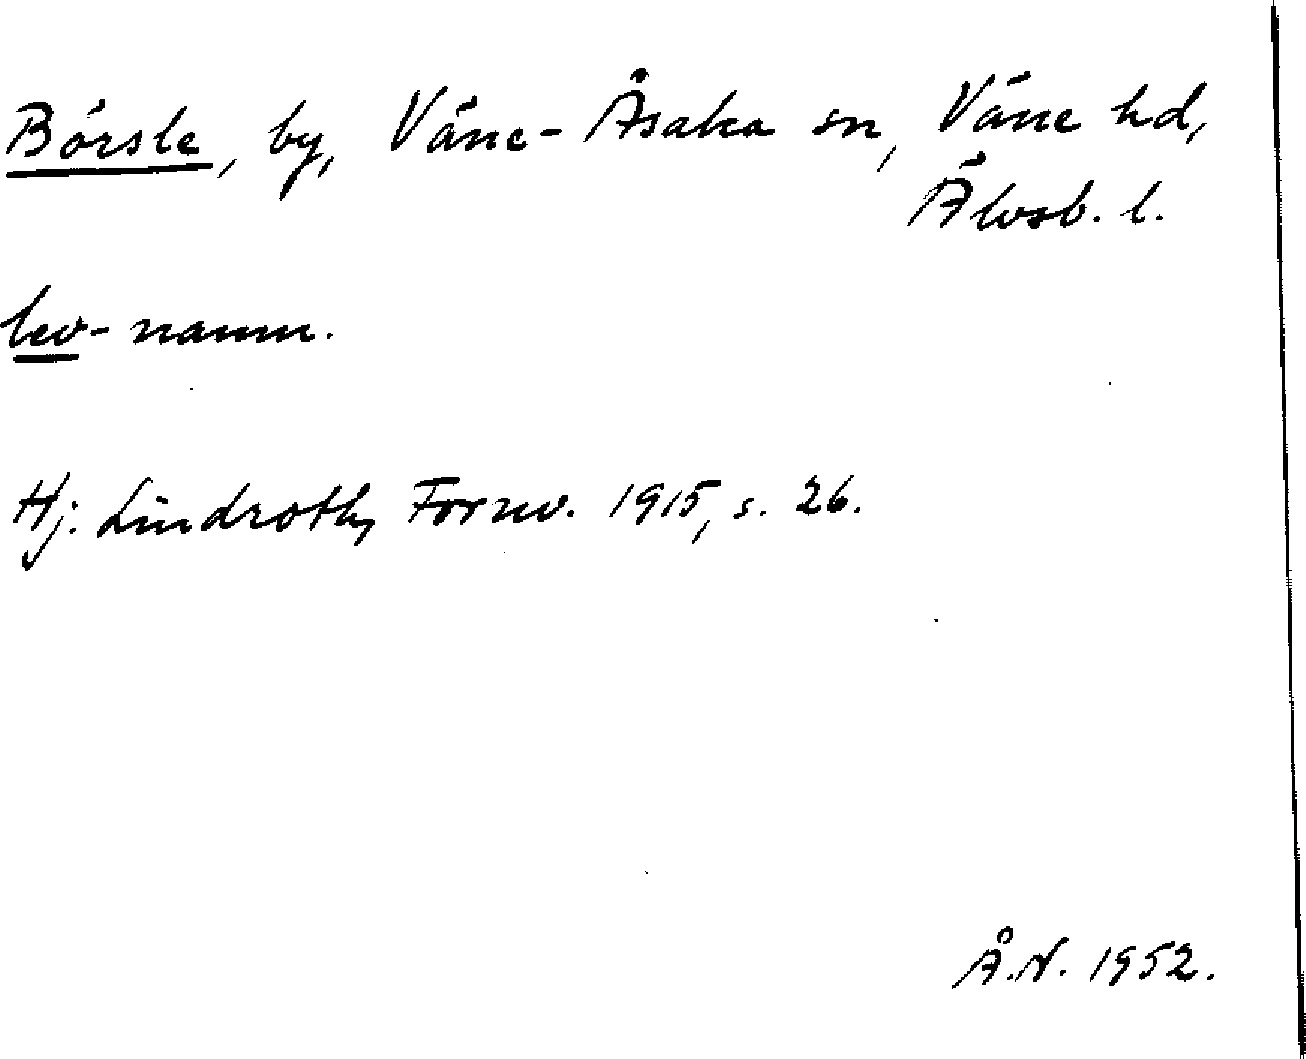 Börsle, by, Väne-Åsaka sn, Väne hd,
Älvsb. l.
lev-namn.
Hj. Lindroth, Fornv. 1915, s. 26.
Å.N. 1952.